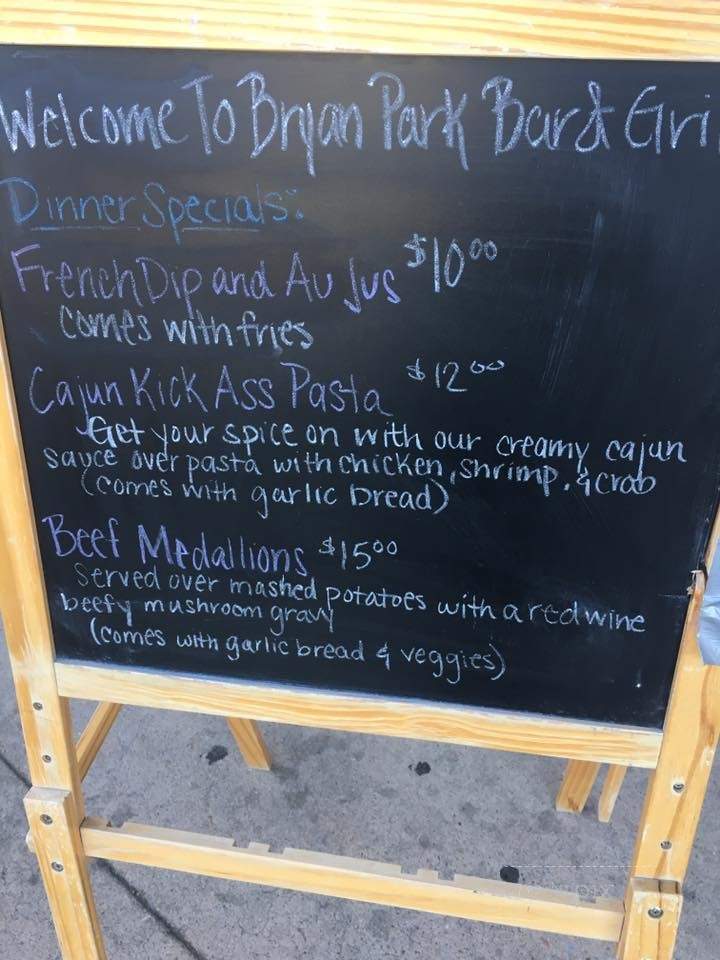 Welcome To Bryan Park Bar & Gri
Dinner Specials:
French Dip and Au Jus $10.00
comes with fries
Cajun Kick Ass Pasta $12.00
Get your spice on with our creamy cajun
sauce over pasta with chicken, shrimp, & crab
(comes with garlic bread)
Beef Medallions $15.00
Served over mashed potatoes with a red wine
beefy mushroom gravy
(comes with garlic bread & veggies)